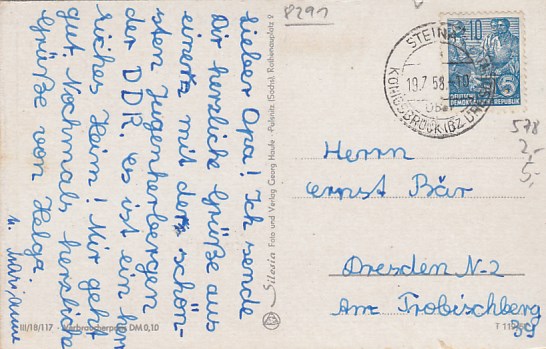 8291
Lieber Opa! Ich sende
Dir herzliche Grüße aus
einer mit der schön-
sten Jugenherbergen
der DDR. es ist ein herr
liches Heim! Mir geht
gut. Nochmals herzliche
Grüße von Helga
u. Marianne
III/18/117 - Verbraucherpreis DM 0,10
Silesia Foto und Verlag Georg Haufe · Pulsnitz (Sachs), Rathausplatz 2
STEINA
19.7.58.-10
KÖNIGSBRÜCK (BZ
10
5
DEUTSCHE
DEMOKRATISCHE REPUBLIK
578
2,-
5,-
Herrn
Ernst Bär
Dresden N-2
Am Trobischberg
39